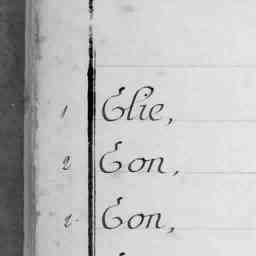 1 Elie,
2 Eon,
2 Eon,